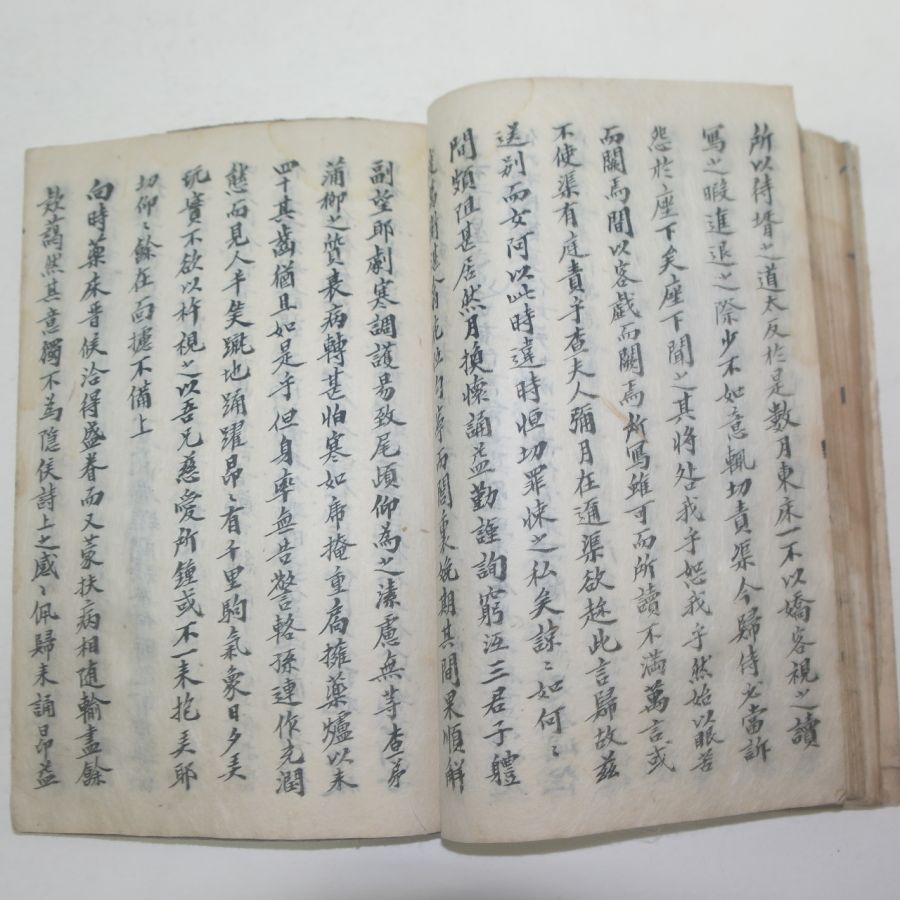 所以待壻之道太反於是數月東床一不以嬌客視之讀
寫之暇進退之際少不如意輒切責渠今歸侍必當訴
怨於座下矣座下聞之其將咎我乎恕我乎然始以眼苦
而闕焉間以客戲而闕焉所寫雖可而所讀不滿萬言或
不使渠有庭責乎查夫人彌月在邇渠欲趁此言歸故玆
送別而女阿以此時違時恒切罪悚之私矣諒諒如何何
間頗阻甚居然月換懷誦益勤謹詢窮沍三君子體
期其間果順解
副望耶劇寒調護易致尾頉仰爲之溱慮無等查弟
蒲柳之質衰病轉甚怕寒如席掩重扃擁藥爐以未
四十其齒猶且如是乎但身率無告警輅孫連作充潤
態而見人半笑躐地踊躍昂昂有千里駒氣象日夕弄
玩實不欲以杵視之以吾兄慈愛所鍾或不一來抱弄耶
切仰仰餘在面攄不備上
向時藥床昔候洽得盛眷而又蒙扶病相隨輸盡餘
欵藹然其意獨不爲隱侯詩上之感感佩歸來誦昂益